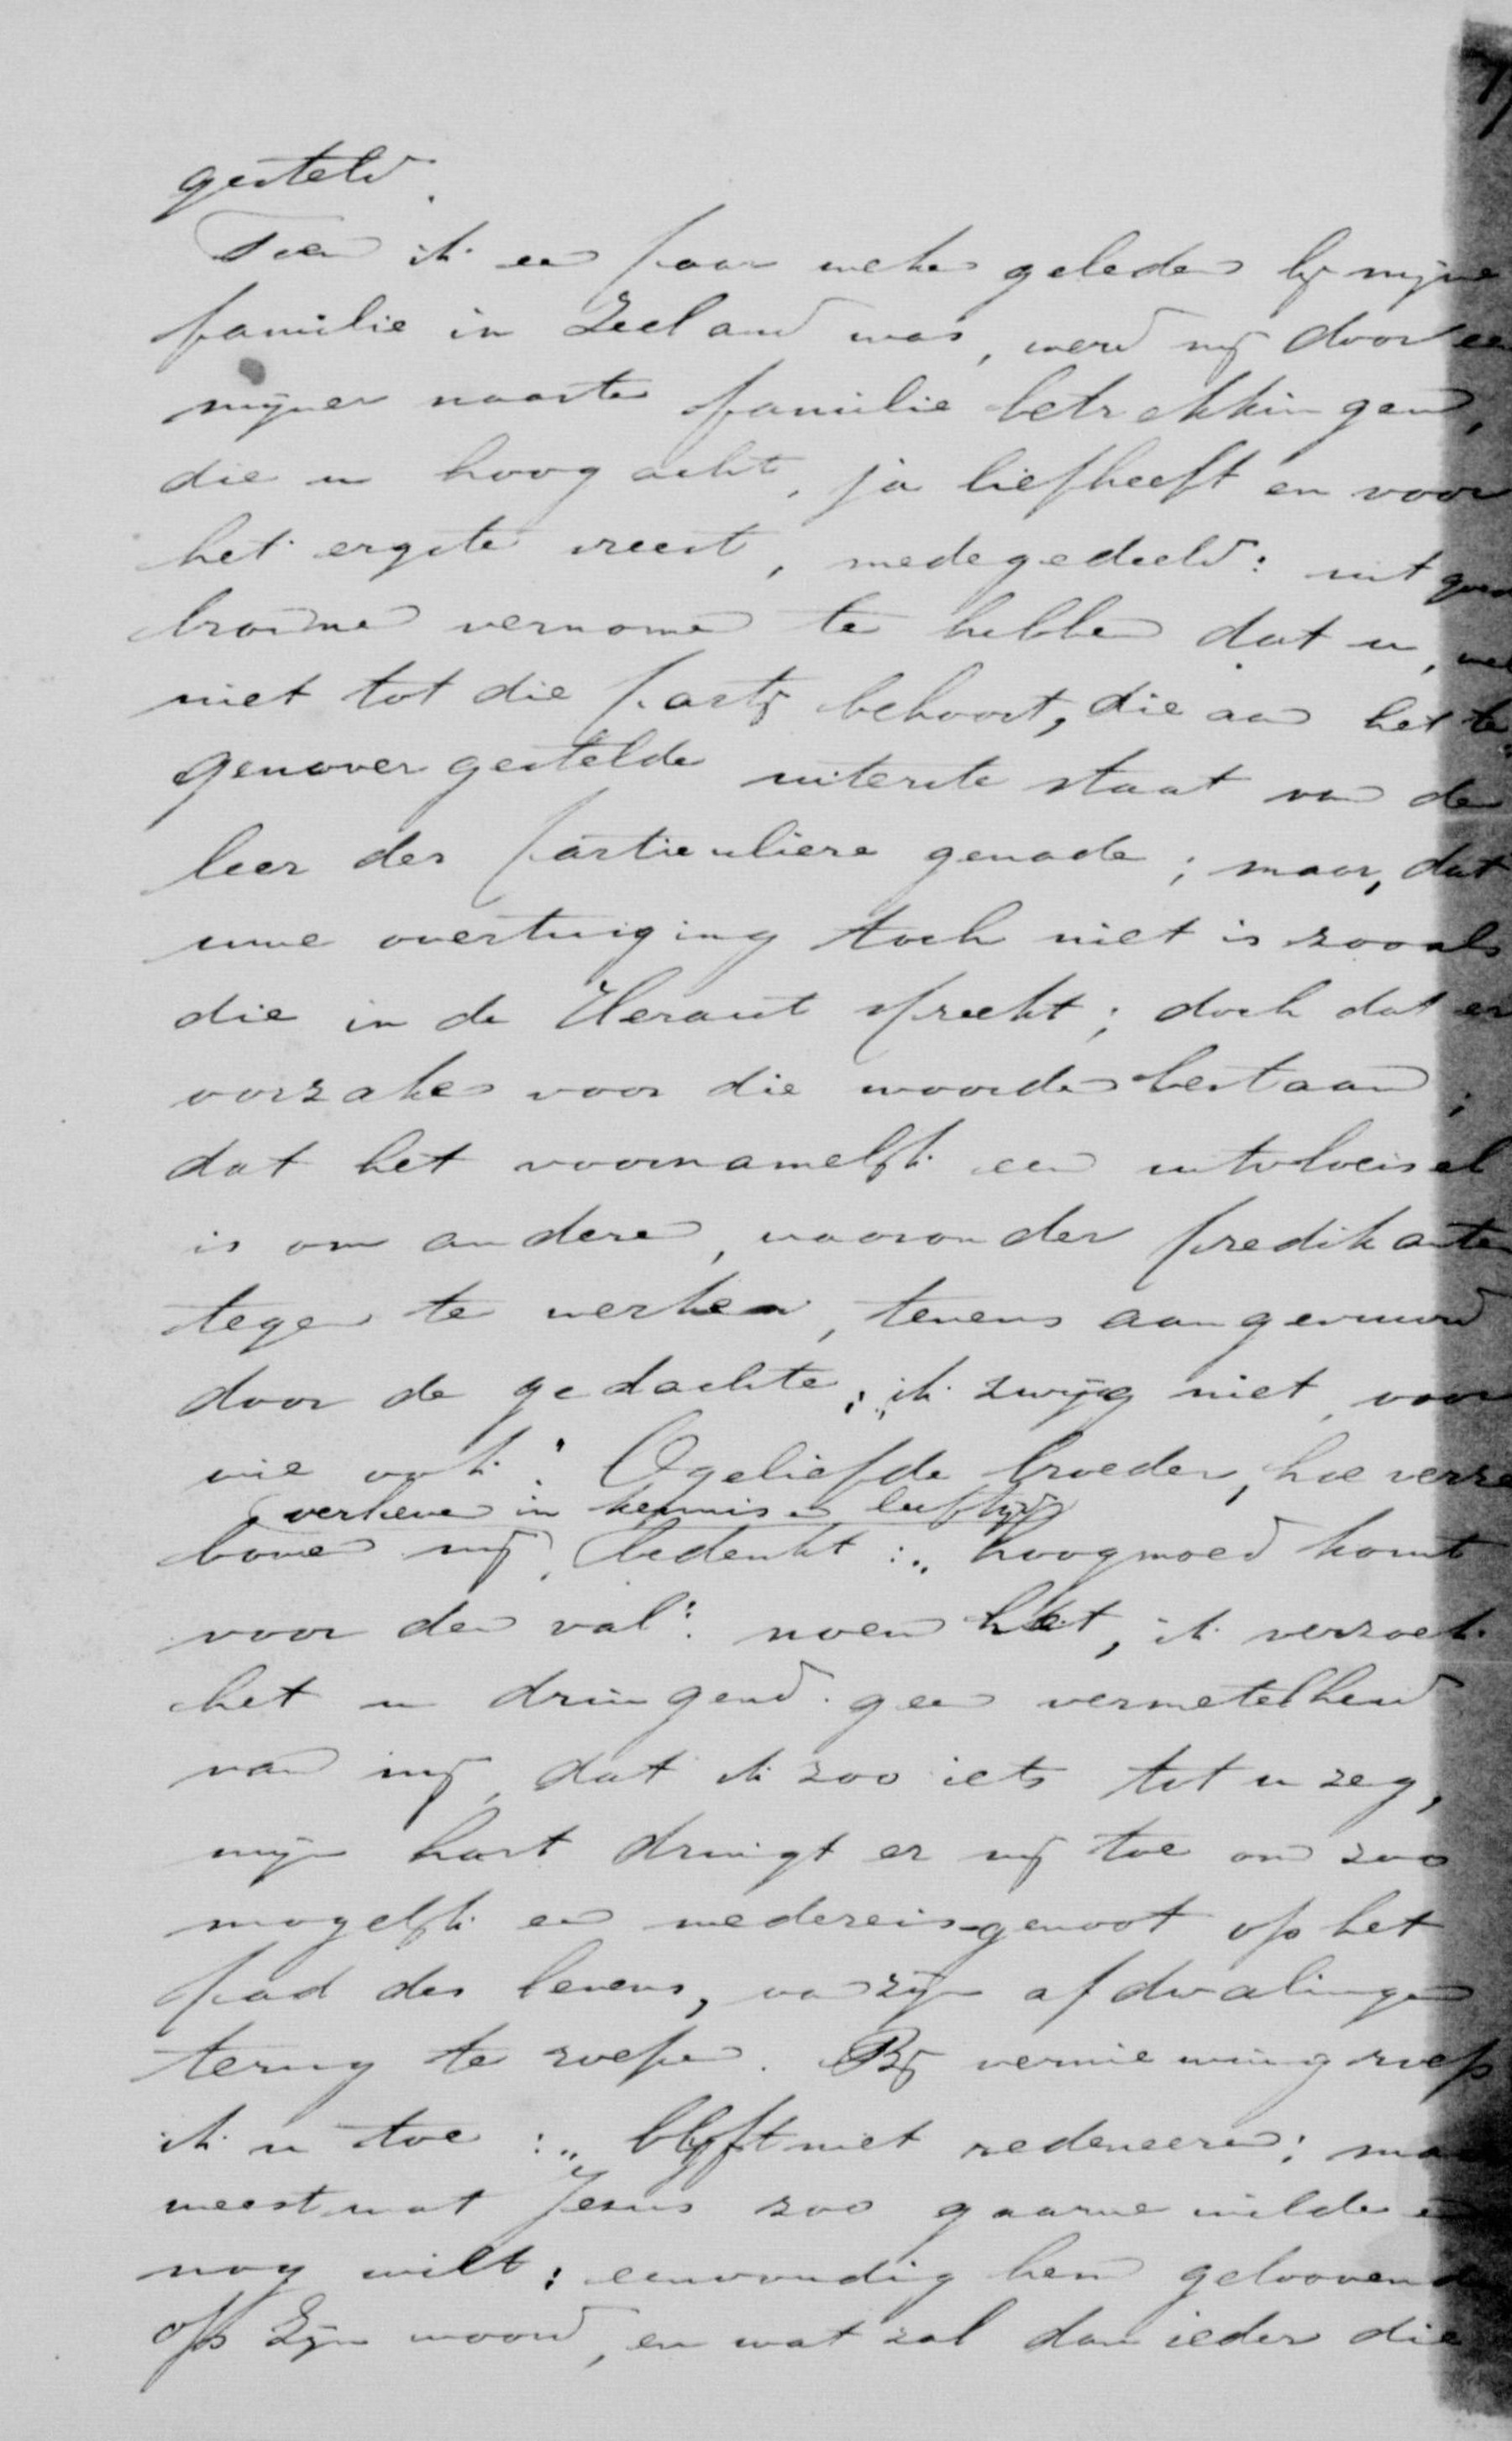 gesteld.
Toen ik een paar weken geleden bij mijne
familie in Zeeland was, werd mij door een
mijner naaste familie betrekkingen,
die u hoog acht, ja liefheeft en voor
het ergste vreest, medegedeeld: uit goede
bronne vernomen te hebben dat u, wel
niet tot die partij behoort, die aan het te
genovergestelde uiterste staat van de
leer der particuliere genade; maar, dat
uwe overtuiging toch niet is zooals
die in de Heraut spreekt; doch dat er
oorzaken voor die woorden bestaan;
dat het voornamelijk een uitvloeisel
is om anderen, waaronder predikanten
tegen te werken, tevens aangevuurd
door de gedachte: „ik zwijg niet, voor
wie ook." O geliefde broeder, hoe verre
verheven in kennis en leeftijd
boven mij, bedenkt: „hoogmoed komt
voor den val": noem het, ik verzoek
het u dringend geen vermetelheid
van mij, dat ik zoo iets tot u zeg,
mijn hart dringt er mij toe om zoo
mogelijk een medereisgenoot op het
pad des levens, van zijn afdwalingen
terug te roepen. Bij vernieuwing roep
ik u toe: „blijft niet redeneeren; maar
weest wat Jesus zoo gaarne wilde en
nog wilt: eenvoudig hem geloovende
op Zijn woord, en wat zal dan ieder die